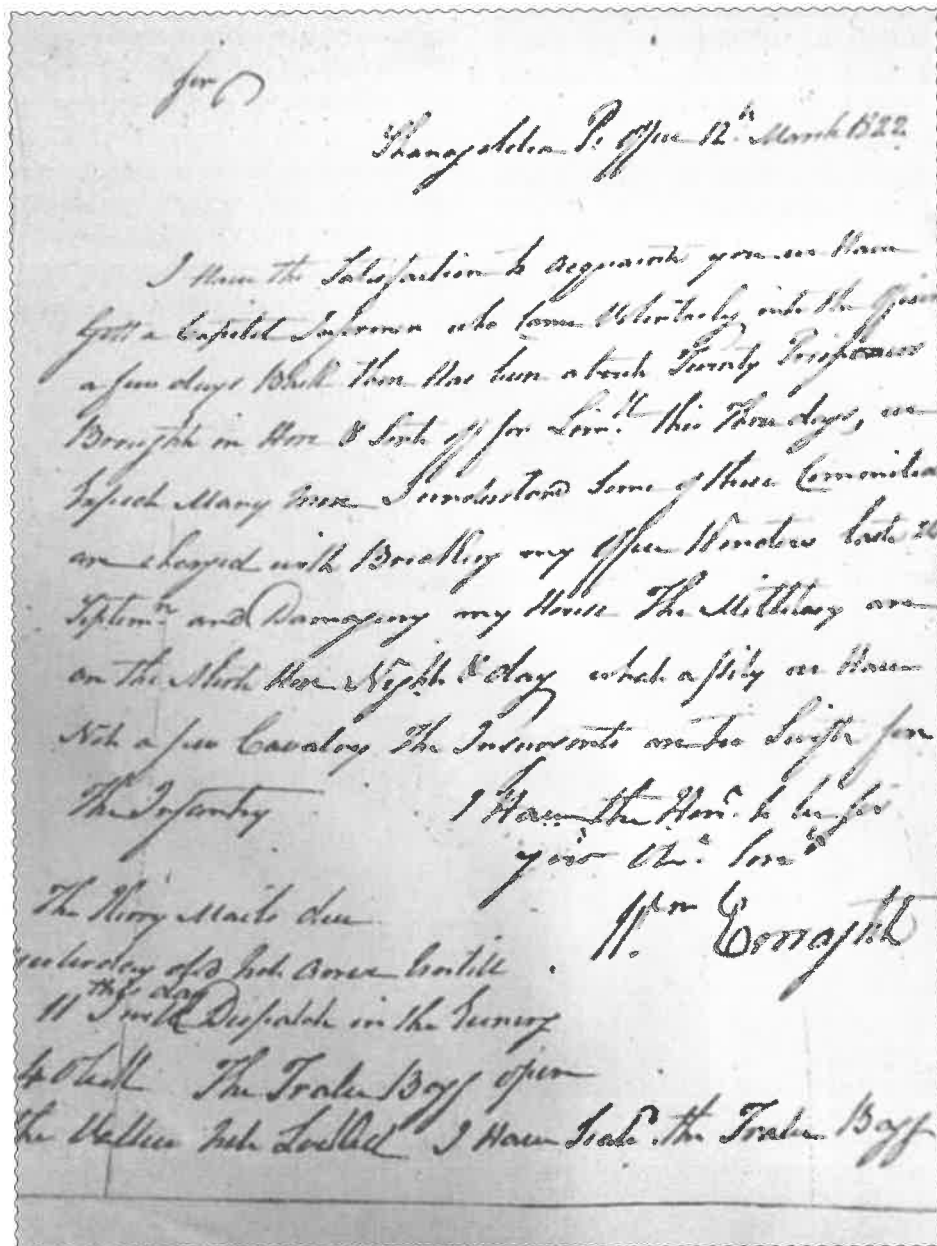 Sir
Shanagolden P. Office 12th March 1822
I Have the Satisfaction to acquainte you we Have
Gott a Capitel Informer who Came Volintarly into the Office
a few days Back there Has been about Twenty Prissoners
Brought in Here & Sent off for Limk this three days, we
Expect Many more I understand Some of these Commities
are charged with Breaking my Office Windows last
Septemr and Damaging my House The Millitary are
on the Alirt Here Night & day what a pity we Have
Not a few Cavalory The Insursents are too Swifte for
The Infantry I Have the Honr to be Sir
your Obt Servt
Wm Enraght
The Kerry Mails due
yesterday did not arive Untill
11 this day I will Dispatch in the Evening
4 OClk The Tralee Bagg open
the Vallice not Locked I Have Seald the Tralee Bagg